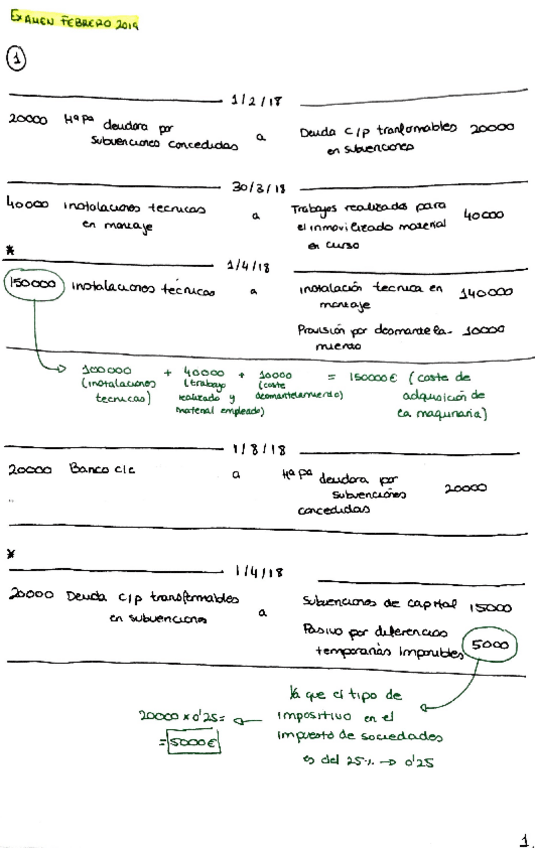 EXAMEN FEBRERO 2019
1
1/2/18
20000 Hª Pª deudora por subvenciones concedidas a Deuda c/p tranformables en subvenciones 20000
30/3/18
40000 instalaciones tecnicas en montaje a Trabajos realizados para el inmovilizado material en curso 40000
*
1/4/18
150000 instalaciones técnicas a instalación tecnica en montaje 140000
Provisión por desmantelamiento 10000
100000 + 40000 + 10000 = 150000€ (coste de
(instalaciones (trabajo (coste adquisición de
tecnicas) realizado y desmantelamiento) la maquinaria)
material empleado)
1/8/18
20000 Banco c/c a Hª Pª deudora por subvenciones concedidas 20000
*
1/4/18
20000 Deuda c/p transformables en subvenciones a Subvenciones de capital 15000
Pasivo por diferencias temporarias imponibles 5000
Ya que el tipo de
20000 x 0'25 = impositivo en el
= 5000€ impuesto de sociedades
es del 25% → 0'25
1